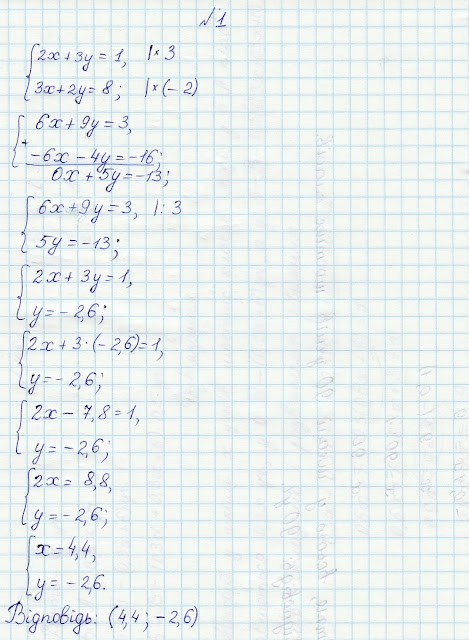 №1
2x+3y=1, |× 3
3x+2y=8; |×(-2)
6x+9y=3,
+
-6x-4y=-16;
0x+5y=-13;
6x+9y=3, |: 3
5y=-13;
2x+3y=1,
y=-2,6;
2x+3·(-2,6)=1,
y=-2,6;
2x-7,8=1,
y=-2,6;
2x=8,8,
y=-2,6;
x=4,4,
y=-2,6.
Відповідь: (4,4; -2,6)